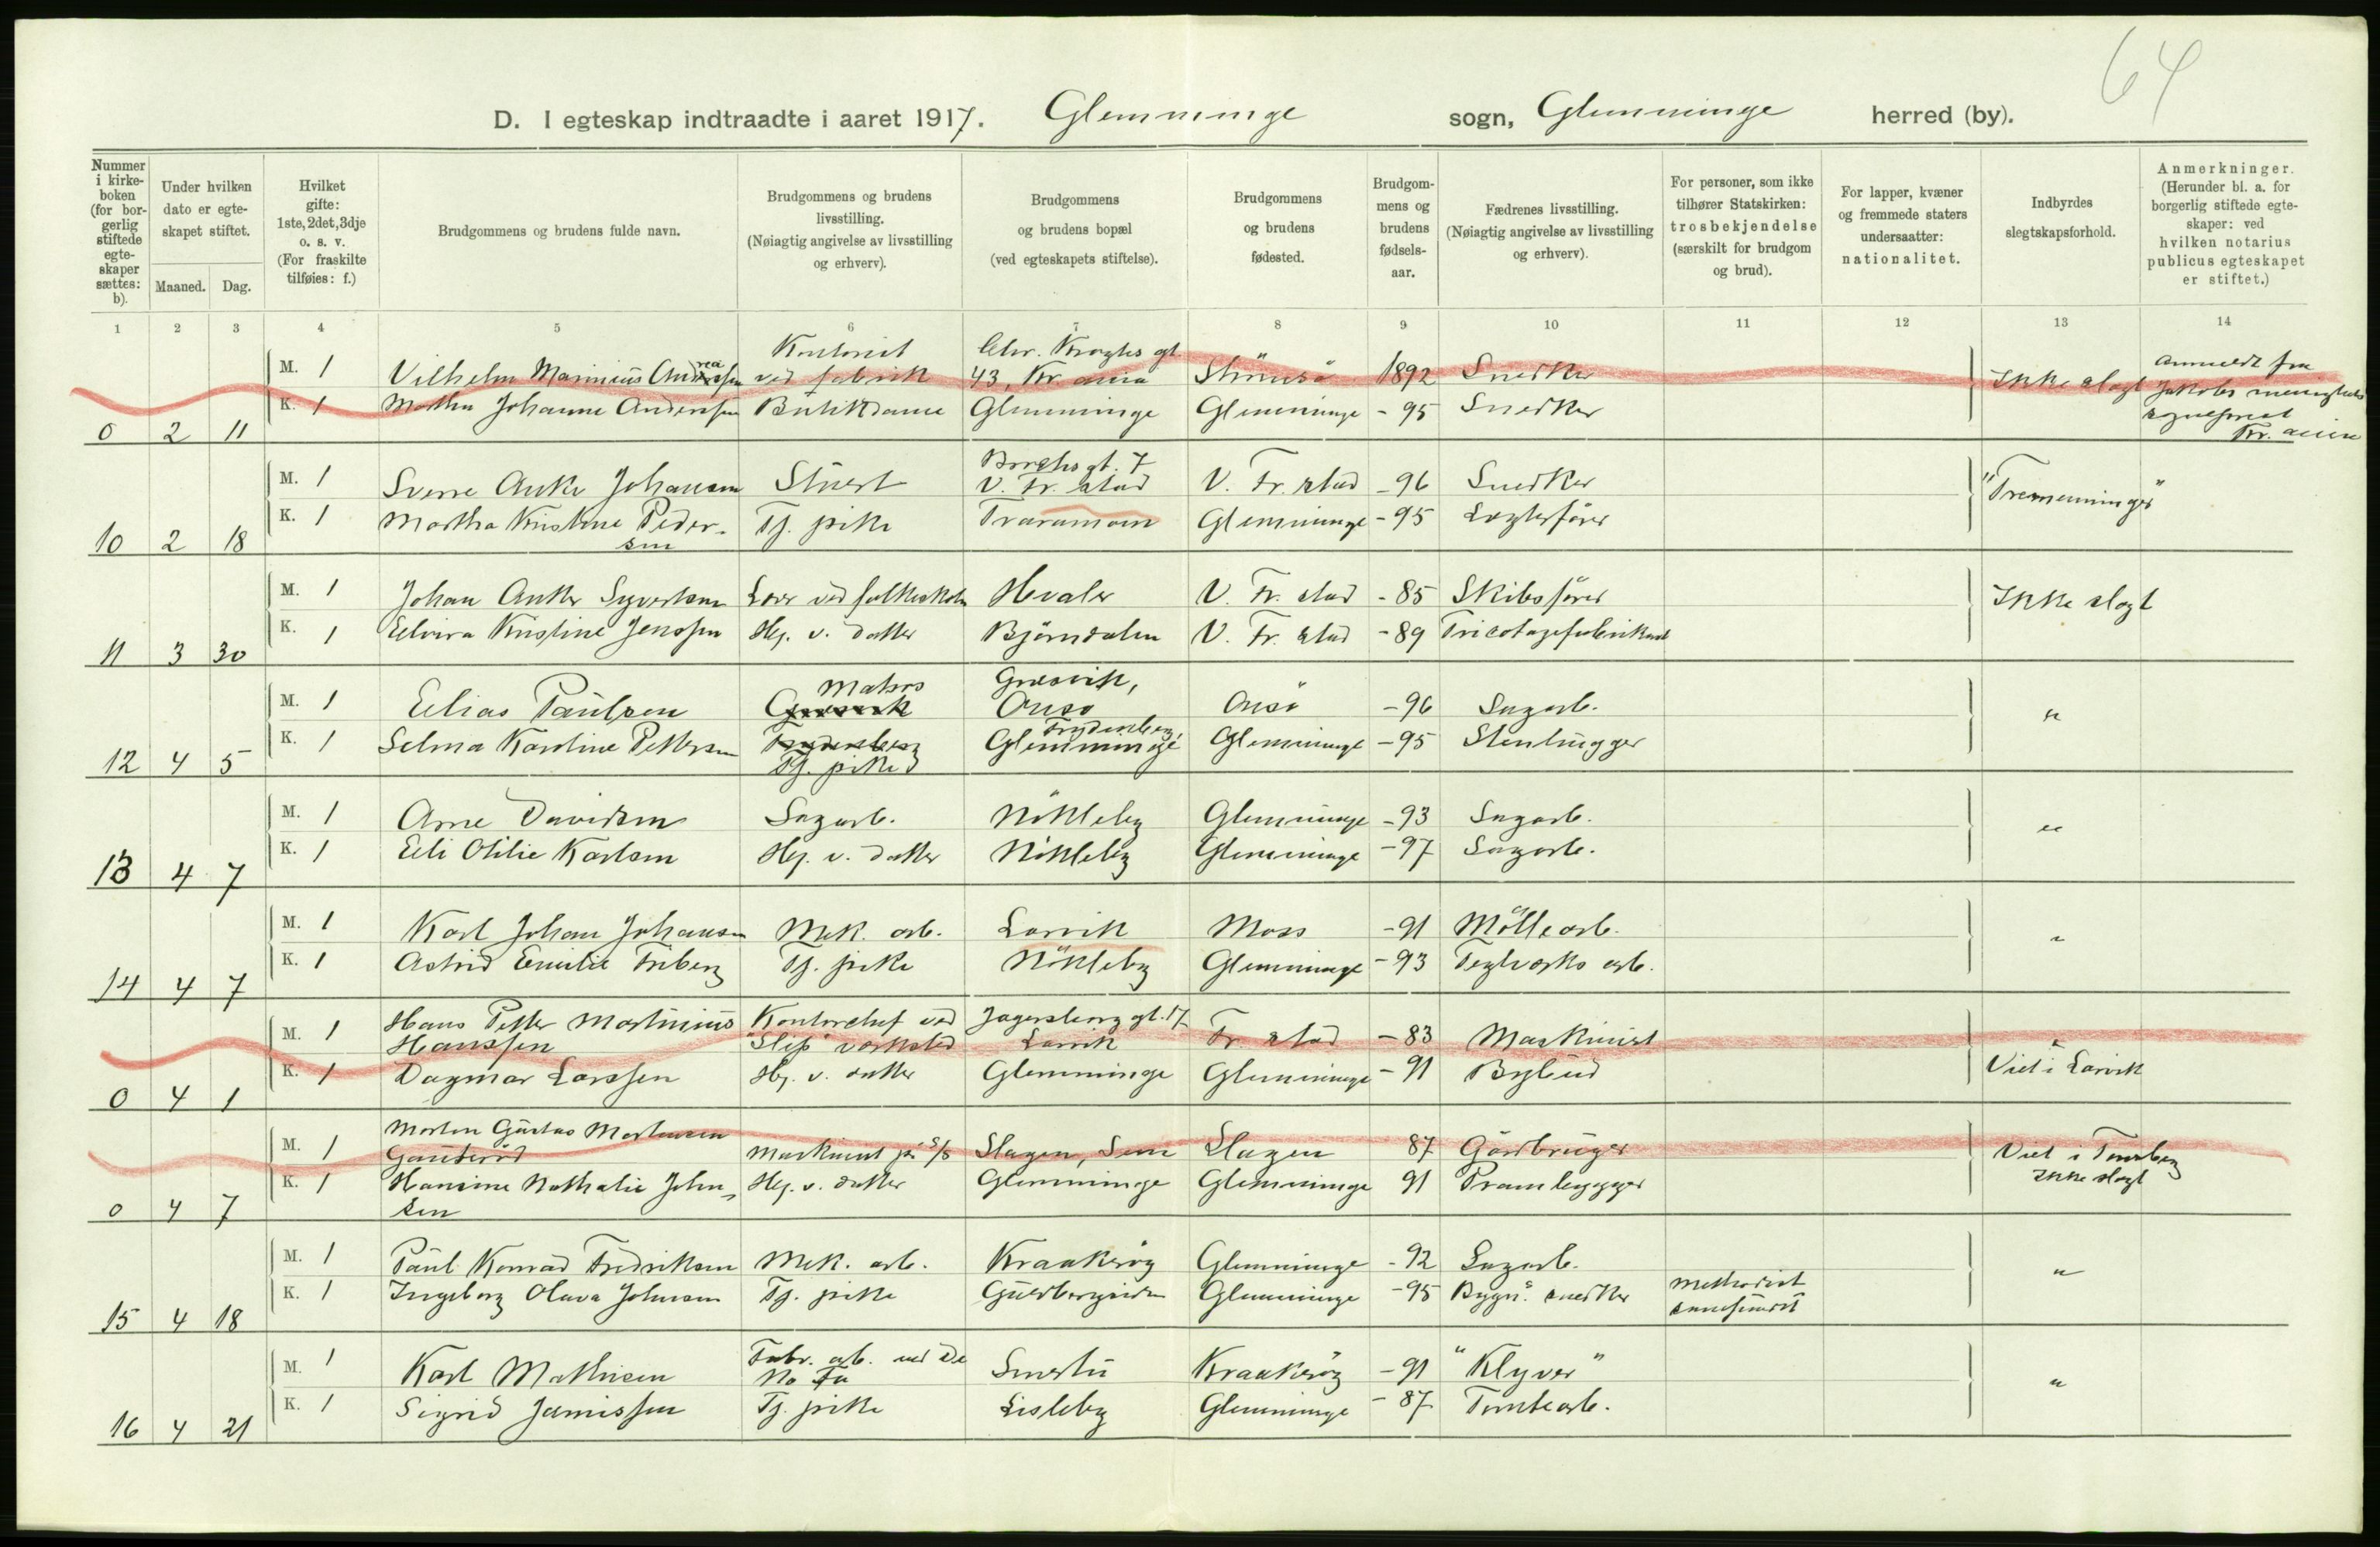 64
D. I egteskap indtraadte i aaret 1917. Glemminge sogn, Glemminge herred (by).
Nummer i kirkeboken (for borgerlig stiftede egteskaper sættes: b).
Under hvilken dato er egteskapet stiftet.
Maaned. Dag.
Hvilket gifte: 1ste, 2det, 3dje o. s. v. (For fraskilte tilføies: f.)
Brudgommens og brudens fulde navn.
Brudgommens og brudens livsstilling. (Nøiagtig angivelse av livsstilling og erhverv).
Brudgommens og brudens bopæl (ved egteskapets stiftelse).
Brudgommens og brudens fødested.
Brudgommens og brudens fødselsaar.
Fædrenes livsstilling. (Nøiagtig angivelse av livsstilling og erhverv).
For personer, som ikke tilhører Statskirken: trosbekjendelse (særskilt for brudgom og brud).
For lapper, kvæner og fremmede staters undersaatter: nationalitet.
Indbyrdes slegtskapsforhold.
Anmerkninger. (Herunder bl. a. for borgerlig stiftede egteskaper: ved hvilken notarius publicus egteskapet er stiftet.)
1 2 3 4 5 6 7 8 9 10 11 12 13 14
M. 1 Vilhelm Marinius Andreassen Kontorist ved fabrik Chr. Kroghs gt. 43, Kr.ania Strömsö 1892 Snedker Ikke slegt Anmeldt fra Jakobs menigheds sogneprest Kr.ania
K. 1 Martha Johanne Andersen Butikdame Glemminge Glemminge - 95 Snedker
0 2 11
M. 1 Sverre Anker Johansen Stuert Borghs gt. 7 V. Fr.stad V. Fr.stad - 96 Snedker "Tremenninger"
K. 1 Martha Kristine Pedersen Tj. pike Traramoen Glemminge - 95 Lægterfører
10 2 18
M. 1 Johan Anker Syvertsen Lærer ved folkeskolen Hvaler V. Fr.stad - 85 Skibsfører Ikke slegt
K. 1 Elvira Kristine Jenssen Hj. v. datter Björndalen V. Fr.stad - 89 Tricotagefabrikant
11 3 30
M. 1 Elias Paulsen Matros Gresvik, Onsö Onsö - 96 Sagarb. "
K. 1 Selma Karoline Pettersen Tj. pike Frydenberg, Glemminge Glemminge - 95 Stenhugger
12 4 5
M. 1 Arne Davidsen Sagarb. Nökleby Glemminge - 93 Sagarb. "
K. 1 Elli Otilie Karlsen Hj. v. datter Nökleby Glemminge - 97 Sagarb.
13 4 7
M. 1 Karl Johan Johansen Mek. arb. Larvik Moss - 91 Möllearb. "
K. 1 Astrid Emilie Friberg Tj. pike Nökleby Glemminge - 93 Teglverks arb.
14 4 7
M. 1 Hans Petter Martinius Hanssen Kontorchef ved "Slip" værksted Jegersborg gt. 17 Larvik Fr.stad - 83 Maskinist "
K. 1 Dagmar Larssen Hj. v. datter Glemminge Glemminge - 91 Bybud Viet i Larvik
0 4 1
M. 1 Morten Gustav Mortensen Gauterød Maskinist på S/S Slagen, Sem Slagen 87 Gårdbruger Viet i Tønsberg Ikke slegt
K. 1 Hansine Nathalie Johnsen Hj. v. datter Glemminge Glemminge 91 Prambygger
0 4 7
M. 1 Paul Konrad Fredriksen Mek. arb. Kraakerøy Glemminge - 92 Sagarb. "
K. 1 Ingeborg Olava Johnsen Tj. pike Gudbergsiden Glemminge - 95 Bygn. snedker Methodist
15 4 18
M. 1 Karl Mathisen Fabr. arb. ved De No Fa Smertu Kraakerøy - 91 "Klyver" "
K. 1 Sigrid Jemissen Tj. pike Lisleby Glemminge - 87 Tomtearb.
16 4 21